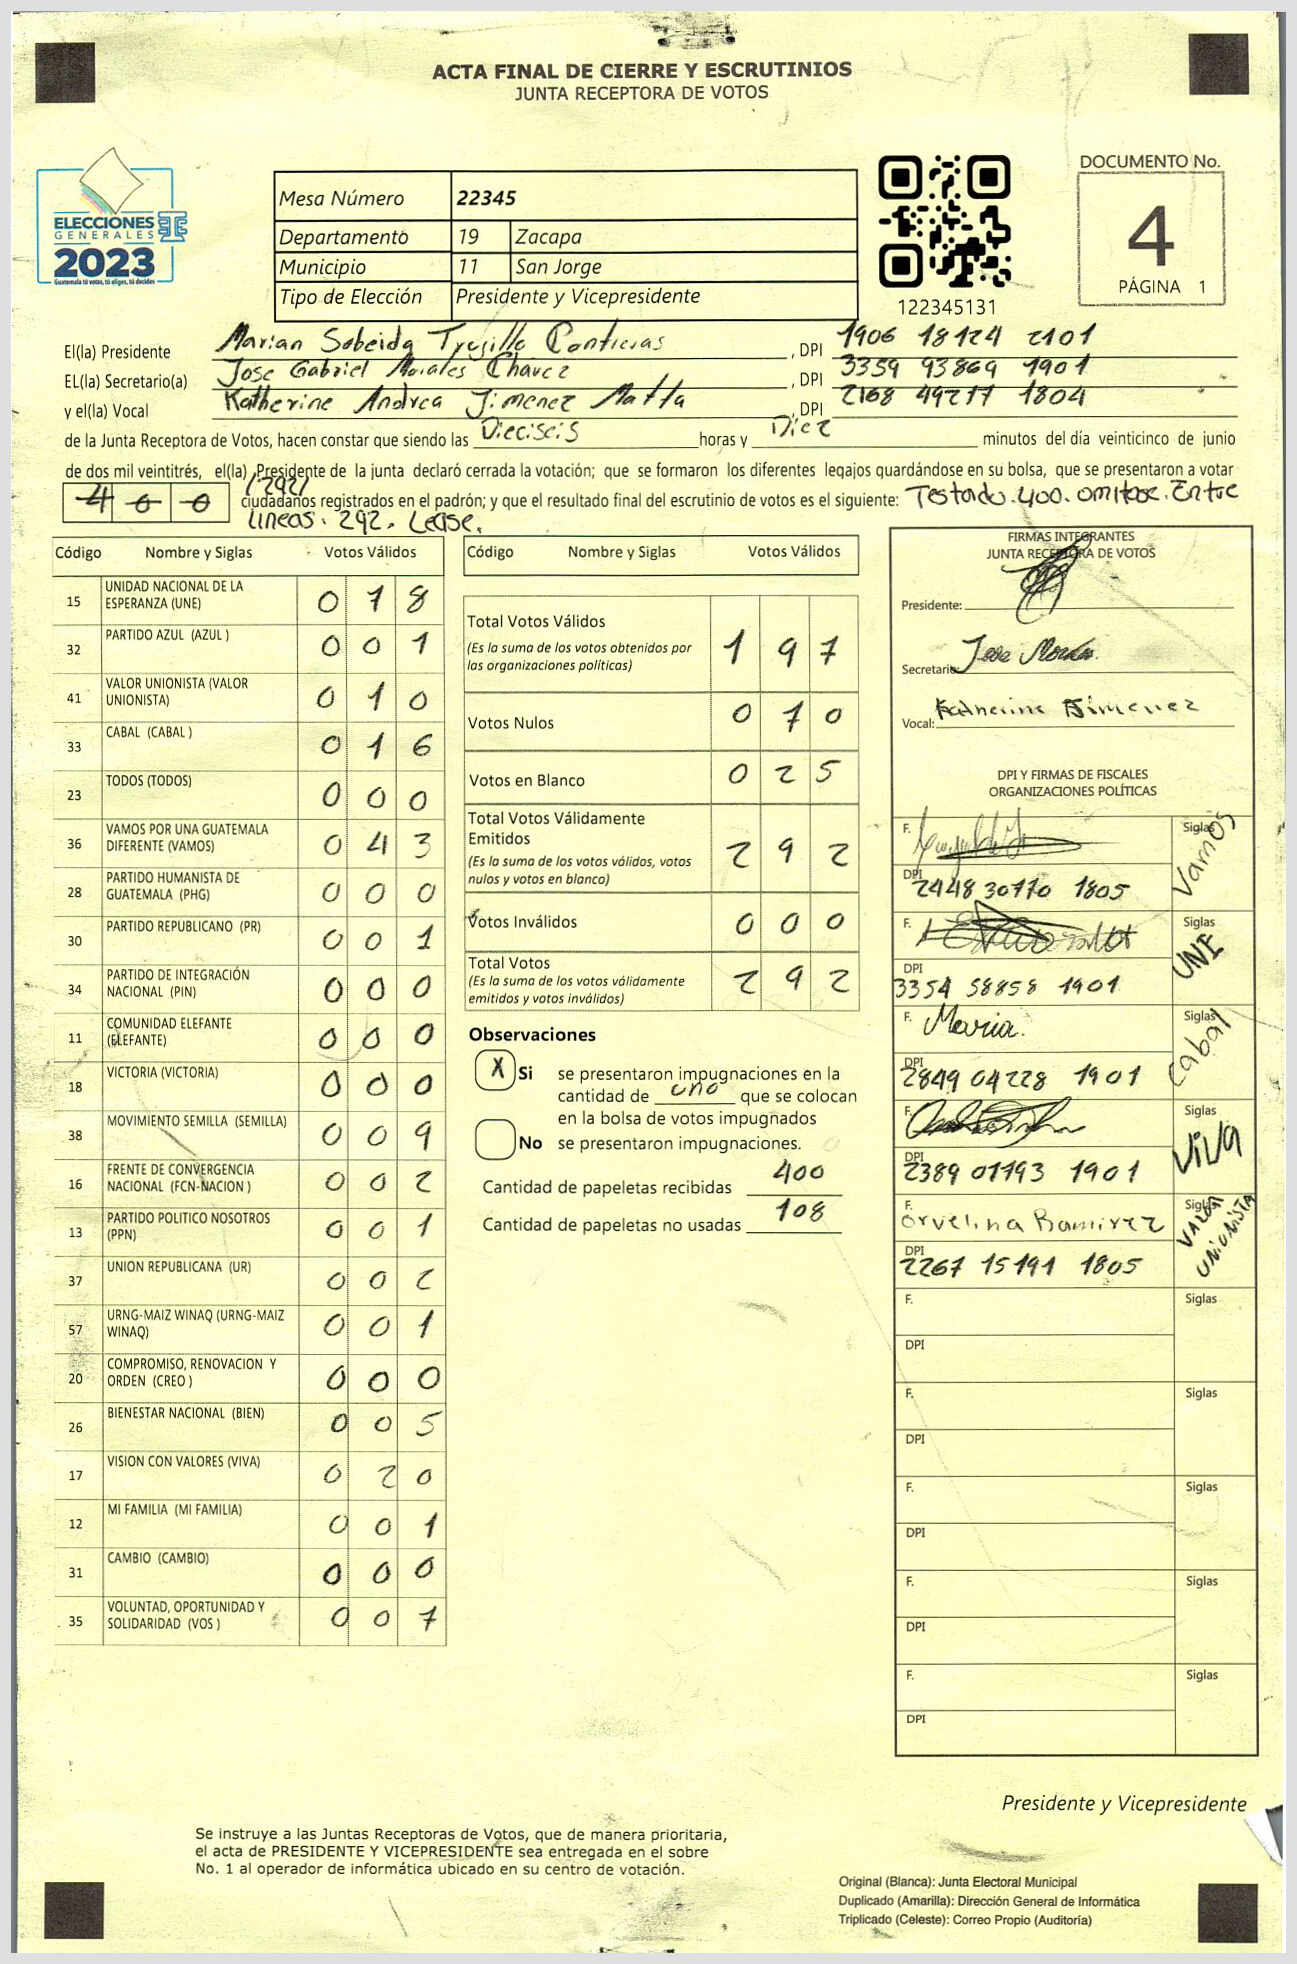 ACTA FINAL DE CIERRE Y ESCRUTINIOS
JUNTA RECEPTORA DE VOTOS
ELECCIONES
GENERALES
2023
Guatemala tú votas, tú eliges, tú decides
TSE
Mesa Número 22345
Departamento 19 Zacapa
Municipio 11 San Jorge
Tipo de Elección Presidente y Vicepresidente
122345131
DOCUMENTO No.
4
PÁGINA 1
El(la) Presidente Marian Sobeida Trujillo Contreras , DPI 1906 18124 2101
EL(la) Secretario(a) Jose Gabriel Morales Chavez , DPI 3359 93869 1901
y el(la) Vocal Katherine Andrea Jimenez Matta , DPI 2168 49277 1804
de la Junta Receptora de Votos, hacen constar que siendo las Dieciseis horas y Diez minutos del día veinticinco de junio
de dos mil veintitrés, el(la) Presidente de la junta declaró cerrada la votación; que se formaron los diferentes legajos guardándose en su bolsa, que se presentaron a votar
/292/
400 ciudadanos registrados en el padrón; y que el resultado final del escrutinio de votos es el siguiente: Testado.400.omitase.Entre
lineas. 292. Lease.
Código Nombre y Siglas Votos Válidos
15 UNIDAD NACIONAL DE LA ESPERANZA (UNE) 0 7 8
32 PARTIDO AZUL (AZUL ) 0 0 1
41 VALOR UNIONISTA (VALOR UNIONISTA) 0 1 0
33 CABAL (CABAL ) 0 1 6
23 TODOS (TODOS) 0 0 0
36 VAMOS POR UNA GUATEMALA DIFERENTE (VAMOS) 0 4 3
28 PARTIDO HUMANISTA DE GUATEMALA (PHG) 0 0 0
30 PARTIDO REPUBLICANO (PR) 0 0 1
34 PARTIDO DE INTEGRACIÓN NACIONAL (PIN) 0 0 0
11 COMUNIDAD ELEFANTE (ELEFANTE) 0 0 0
18 VICTORIA (VICTORIA) 0 0 0
38 MOVIMIENTO SEMILLA (SEMILLA) 0 0 9
16 FRENTE DE CONVERGENCIA NACIONAL (FCN-NACION ) 0 0 2
13 PARTIDO POLITICO NOSOTROS (PPN) 0 0 1
37 UNION REPUBLICANA (UR) 0 0 2
57 URNG-MAIZ WINAQ (URNG-MAIZ WINAQ) 0 0 1
20 COMPROMISO, RENOVACION Y ORDEN (CREO ) 0 0 0
26 BIENESTAR NACIONAL (BIEN) 0 0 5
17 VISION CON VALORES (VIVA) 0 2 0
12 MI FAMILIA (MI FAMILIA) 0 0 1
31 CAMBIO (CAMBIO) 0 0 0
35 VOLUNTAD, OPORTUNIDAD Y SOLIDARIDAD (VOS ) 0 0 7
Código Nombre y Siglas Votos Válidos
Total Votos Válidos
(Es la suma de los votos obtenidos por
las organizaciones políticas) 1 9 7
Votos Nulos 0 7 0
Votos en Blanco 0 2 5
Total Votos Válidamente
Emitidos
(Es la suma de los votos válidos, votos
nulos y votos en blanco) 2 9 2
Votos Inválidos 0 0 0
Total Votos
(Es la suma de los votos válidamente
emitidos y votos inválidos) 2 9 2
Observaciones
X Si se presentaron impugnaciones en la
cantidad de uno que se colocan
en la bolsa de votos impugnados
No se presentaron impugnaciones.
Cantidad de papeletas recibidas 400
Cantidad de papeletas no usadas 108
FIRMAS INTEGRANTES
JUNTA RECEPTORA DE VOTOS
Presidente:
Secretario Jose Morales
Vocal: Katherine Jimenez
DPI Y FIRMAS DE FISCALES
ORGANIZACIONES POLÍTICAS
F. Siglas Vamos
DPI 2448 30770 1805
F. Siglas UNE
DPI 3354 58858 1901
F. Maria. Siglas Cabal
DPI 2849 04228 1901
F. Siglas VIVA
DPI 2389 01193 1901
F. orvelina Ramirez Siglas VALOR UNIONISTA
DPI 2267 15191 1805
F. Siglas
DPI
F. Siglas
DPI
F. Siglas
DPI
F. Siglas
DPI
F. Siglas
DPI
Presidente y Vicepresidente
Se instruye a las Juntas Receptoras de Votos, que de manera prioritaria,
el acta de PRESIDENTE Y VICEPRESIDENTE sea entregada en el sobre
No. 1 al operador de informática ubicado en su centro de votación.
Original (Blanca): Junta Electoral Municipal
Duplicado (Amarilla): Dirección General de Informática
Triplicado (Celeste): Correo Propio (Auditoría)